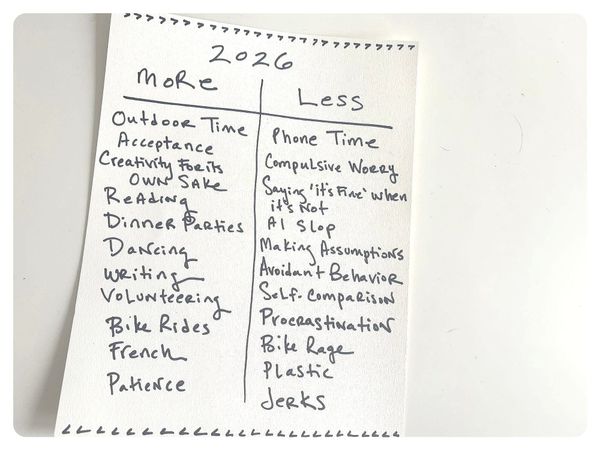 2026
More
Outdoor Time
Acceptance
Creativity For its
Own Sake
Reading
Dinner Parties
Dancing
Writing
Volunteering
Bike Rides
French
Patience
Less
Phone Time
Compulsive Worry
Saying 'it's Fine' when
it's Not
AI Slop
Making Assumptions
Avoidant Behavior
Self-Comparison
Procrastination
Bike Rage
Plastic
Jerks